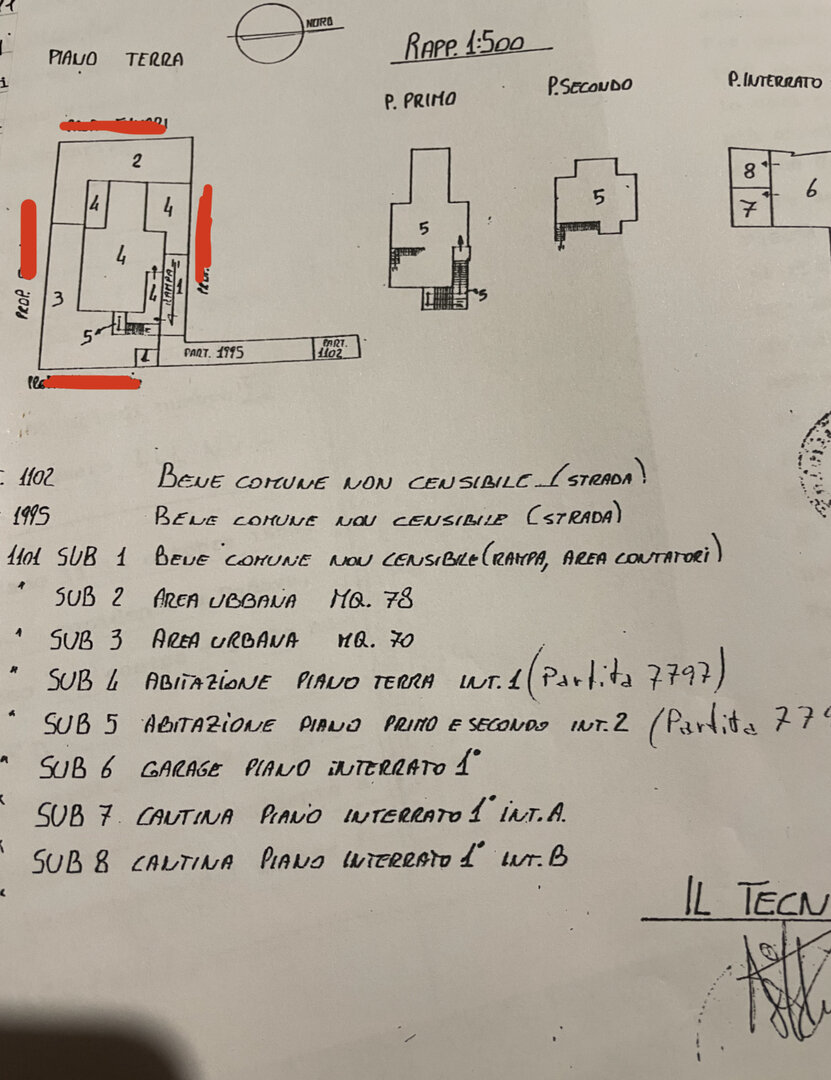 NORD
PIANO TERRA
RAPP. 1:500
P. PRIMO
P. SECONDO
P. INTERRATO
2
4
4
4
4
3
RAMPA
1
5
1
PROP.
PROP.
PART. 1995
PART. 1102
5
5
5
8
7
6
1102 BENE COMUNE NON CENSIBILE (STRADA)
1995 BENE COMUNE NON CENSIBILE (STRADA)
1101 SUB 1 BENE COMUNE NON CENSIBILE (RAMPA, AREA CONTATORI)
" SUB 2 AREA UBBANA MQ. 78
" SUB 3 AREA URBANA MQ. 70
" SUB 4 ABITAZIONE PIANO TERRA INT. 1 (Partita 7797)
" SUB 5 ABITAZIONE PIANO PRIMO E SECONDO INT. 2 (Partita 779
" SUB 6 GARAGE PIANO INTERRATO 1°
SUB 7 CANTINA PIANO INTERRATO 1° INT. A.
SUB 8 CANTINA PIANO INTERRATO 1° INT. B
IL TECN